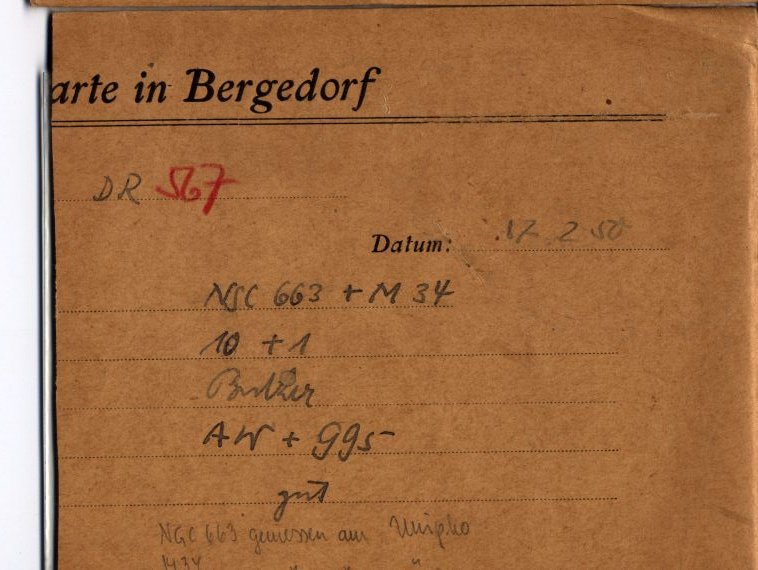 arte in Bergedorf
DR 567
Datum: 17 2 50
NGC 663 + M 34
10 + 1
AW + G95
gut
NGC 663 gemessen am Unipho
M 34